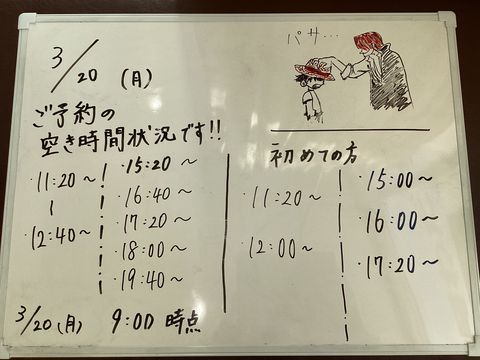 3/20 (月)
パサ…
ご予約の
空き時間状況です!!
・11:20～
・12:40～
・15:20～
・16:40～
・17:20～
・18:00～
・19:40～
初めての方
・11:20～
・12:00～
・15:00～
・16:00～
・17:20～
3/20(月) 9:00 時点